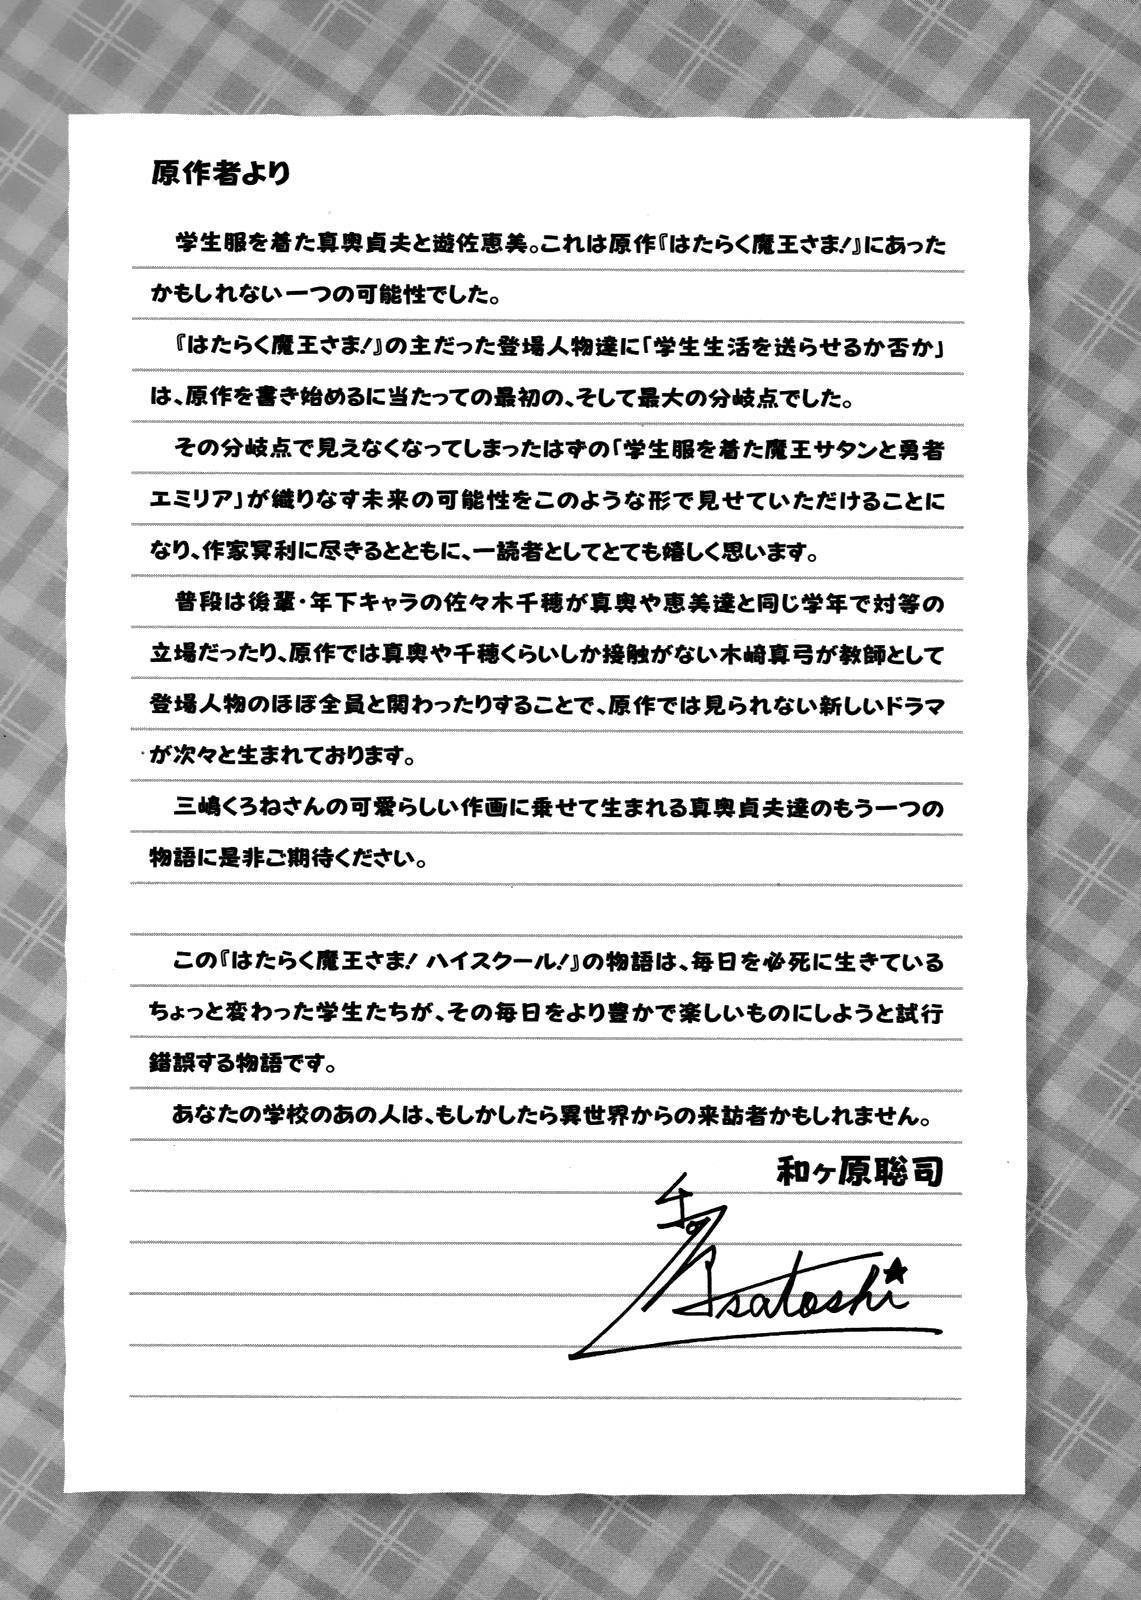 原作者より
学生服を着た真奥貞夫と遊佐恵美。これは原作『はたらく魔王さま!』にあった
かもしれない一つの可能性でした。
『はたらく魔王さま!』の主だった登場人物達に「学生生活を送らせるか否か」
は、原作を書き始めるに当たっての最初の、そして最大の分岐点でした。
その分岐点で見えなくなってしまったはずの「学生服を着た魔王サタンと勇者
エミリア」が織りなす未来の可能性をこのような形で見せていただけることに
なり、作家冥利に尽きるとともに、一読者としてとても嬉しく思います。
普段は後輩・年下キャラの佐々木千穂が真奥や恵美達と同じ学年で対等の
立場だったり、原作では真奥や千穂くらいしか接触がない木崎真弓が教師として
登場人物のほぼ全員と関わったりすることで、原作では見られない新しいドラマ
が次々と生まれております。
三嶋くろねさんの可愛らしい作画に乗せて生まれる真奥貞夫達のもう一つの
物語に是非ご期待ください。
この『はたらく魔王さま! ハイスクール!』の物語は、毎日を必死に生きている
ちょっと変わった学生たちが、その毎日をより豊かで楽しいものにしようと試行
錯誤する物語です。
あなたの学校のあの人は、もしかしたら異世界からの来訪者かもしれません。
和ヶ原聡司
satoshi